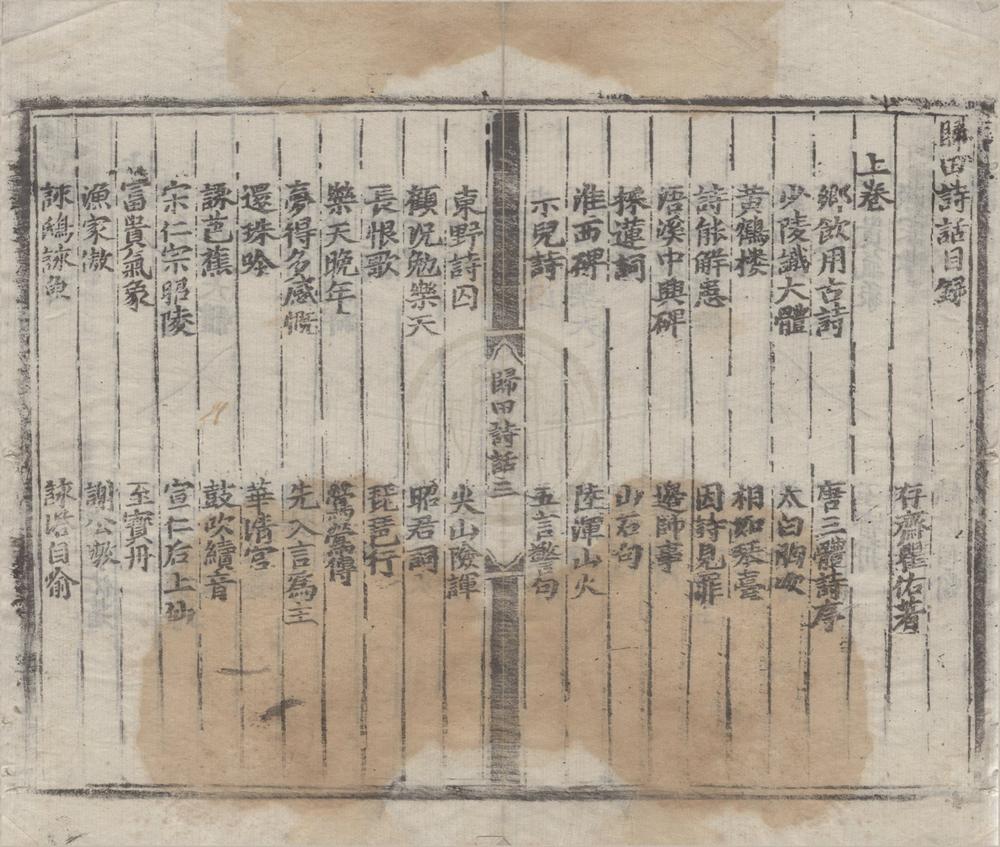 歸田詩話目録
存齋瞿佑著
上卷
鄉飲用古詩　唐三體詩序
少陵識大體　太白胸次
黃鶴楼　相如琴臺
詩能解患　因詩見罪
浯溪中興碑　邊帥事
採蓮詞　山石句
淮西碑　陸渾山火
示兒詩　五言警句
歸田詩話　三
東野詩囚　尖山險諢
顧况勉樂天　昭君詞
長恨歌　琵琶行
樂天晚年　鶯鶯傳
夢得多感慨　先入言為主
還珠吟　華清宮
詠芭蕉　鼓吹續音
宋仁宗昭陵　宣仁后上仙
富貴氣象　至寶丹
漁家傲　謝公墩
詠鴟詠魚　詠浯自喻